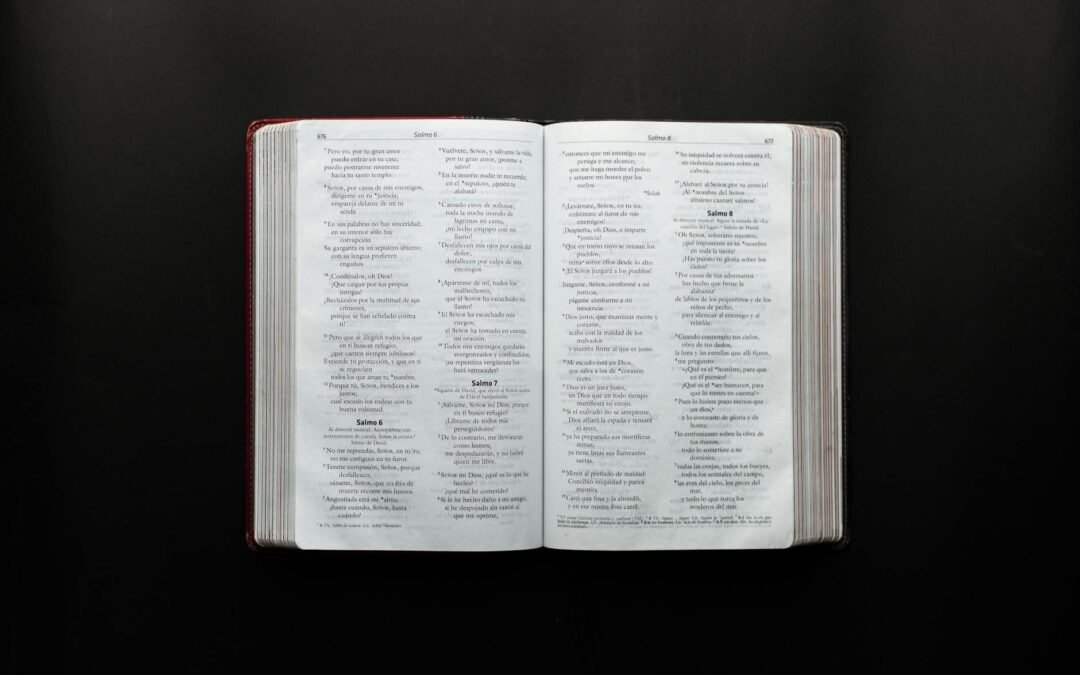 676
Salmo 6
7 Pero yo, por tu gran amor
puedo entrar en tu casa;
puedo postrarme reverente
hacia tu santo templo.
8 Señor, por causa de mis enemigos,
dirígeme en tu *justicia;
empareja delante de mí tu
senda.
9 En sus palabras no hay sinceridad;
en su interior sólo hay
corrupción.
Su garganta es un sepulcro abierto;
con su lengua profieren
engaños.
10 ¡Condénalos, oh Dios!
¡Que caigan por sus propias
intrigas!
¡Recházalos por la multitud de sus
crímenes,
porque se han rebelado contra
ti!
11 Pero que se alegren todos los que
en ti buscan refugio;
¡que canten siempre jubilosos!
Extiende tu protección, y que en ti
se regocijen
todos los que aman tu *nombre.
12 Porque tú, Señor, bendices a los
justos;
cual escudo los rodeas con tu
buena voluntad.
Salmo 6
Al director musical. Acompáñese con
instrumentos de cuerda. Sobre la octava.
Salmo de David.
1 No me reprendas, Señor, en tu ira;
no me castigues en tu furor.
2 Tenme compasión, Señor, porque
desfallezco;
sáname, Señor, que un frío de
muerte recorre mis huesos.
3 Angustiada está mi *alma;
¿hasta cuándo, Señor, hasta
cuándo?
4 Vuélvete, Señor, y sálvame la vida;
por tu gran amor, ¡ponme a
salvo!
5 En la muerte nadie te recuerda;
en el *sepulcro, ¿quién te
alabará?
6 Cansado estoy de sollozar;
toda la noche inundo de
lágrimas mi cama,
¡mi lecho empapo con mi
llanto!
7 Desfallecen mis ojos por causa del
dolor;
desfallecen por culpa de mis
enemigos.
8 ¡Apártense de mí, todos los
malhechores,
que el Señor ha escuchado mi
llanto!
9 El Señor ha escuchado mis
ruegos;
el Señor ha tomado en cuenta
mi oración.
10 Todos mis enemigos quedarán
avergonzados y confundidos;
¡su repentina vergüenza los
hará retroceder!
Salmo 7
*Sigaión de David, que elevó al Señor acerca
de Cus el benjaminita.
1 ¡Sálvame, Señor mi Dios, porque
en ti busco refugio!
¡Líbrame de todos mis
perseguidores!
2 De lo contrario, me devorarán
como leones;
me despedazarán, y no habrá
quien me libre.
3 Señor mi Dios, ¿qué es lo que he
hecho?
¿qué mal he cometido?
4 Si le he hecho daño a mi amigo,
si he despojado sin razón al
que me oprime,
Salmo 8
677
5 entonces que mi enemigo me
persiga y me alcance;
que me haga morder el polvo
y arrastre mi honra por los
suelos.
*Selah
6 ¡Levántate, Señor, en tu ira;
enfréntate al furor de mis
enemigos!
¡Despierta, oh Dios, e imparte
*justicia!
7 Que en torno tuyo se reúnan los
pueblos;
reina sobre ellos desde lo alto.
8 ¡El Señor juzgará a los pueblos!
Júzgame, Señor, conforme a mi
justicia;
págame conforme a mi
inocencia.
9 Dios justo, que examinas mente y
corazón,
acaba con la maldad de los
malvados
y mantén firme al que es justo.
10 Mi escudo está en Dios,
que salva a los de *corazón
recto.
11 Dios es un juez justo,
un Dios que en todo tiempo
manifiesta su enojo.
12 Si el malvado no se arrepiente,
Dios afilará la espada y tensará
el arco;
13 ya ha preparado sus mortíferas
armas;
ya tiene listas sus llameantes
saetas.
14 Miren al preñado de maldad:
Concibió iniquidad y parirá
mentira.
15 Cavó una fosa y la ahondó,
y en esa misma fosa caerá.
16 Su iniquidad se volverá contra él;
su violencia recaerá sobre su
cabeza.
17 ¡Alabaré al Señor por su justicia!
¡Al *nombre del Señor
altísimo cantaré salmos!
Salmo 8
Al director musical. Sígase la tonada de «La
canción del lagar». Salmo de David.
1 Oh Señor, soberano nuestro,
¡qué imponente es tu *nombre
en toda la tierra!
¡Has puesto tu gloria sobre los
cielos!
2 Por causa de tus adversarios
has hecho que brote la
alabanza
de labios de los pequeñitos y de los
niños de pecho,
para silenciar al enemigo y al
rebelde.
3 Cuando contemplo tus cielos,
obra de tus dedos,
la luna y las estrellas que allí fijaste,
4 me pregunto:
«¿Qué es el *hombre, para que
en él pienses?
¿Qué es el *ser humano, para
que lo tomes en cuenta?»
5 Pues lo hiciste poco menos que
un dios,
y lo coronaste de gloria y de
honra;
6 lo entronizaste sobre la obra de
tus manos,
todo lo sometiste a su
dominio;
7 todas las ovejas, todos los bueyes,
todos los animales del campo,
8 las aves del cielo, los peces del
mar,
y todo lo que surca los
senderos del mar.